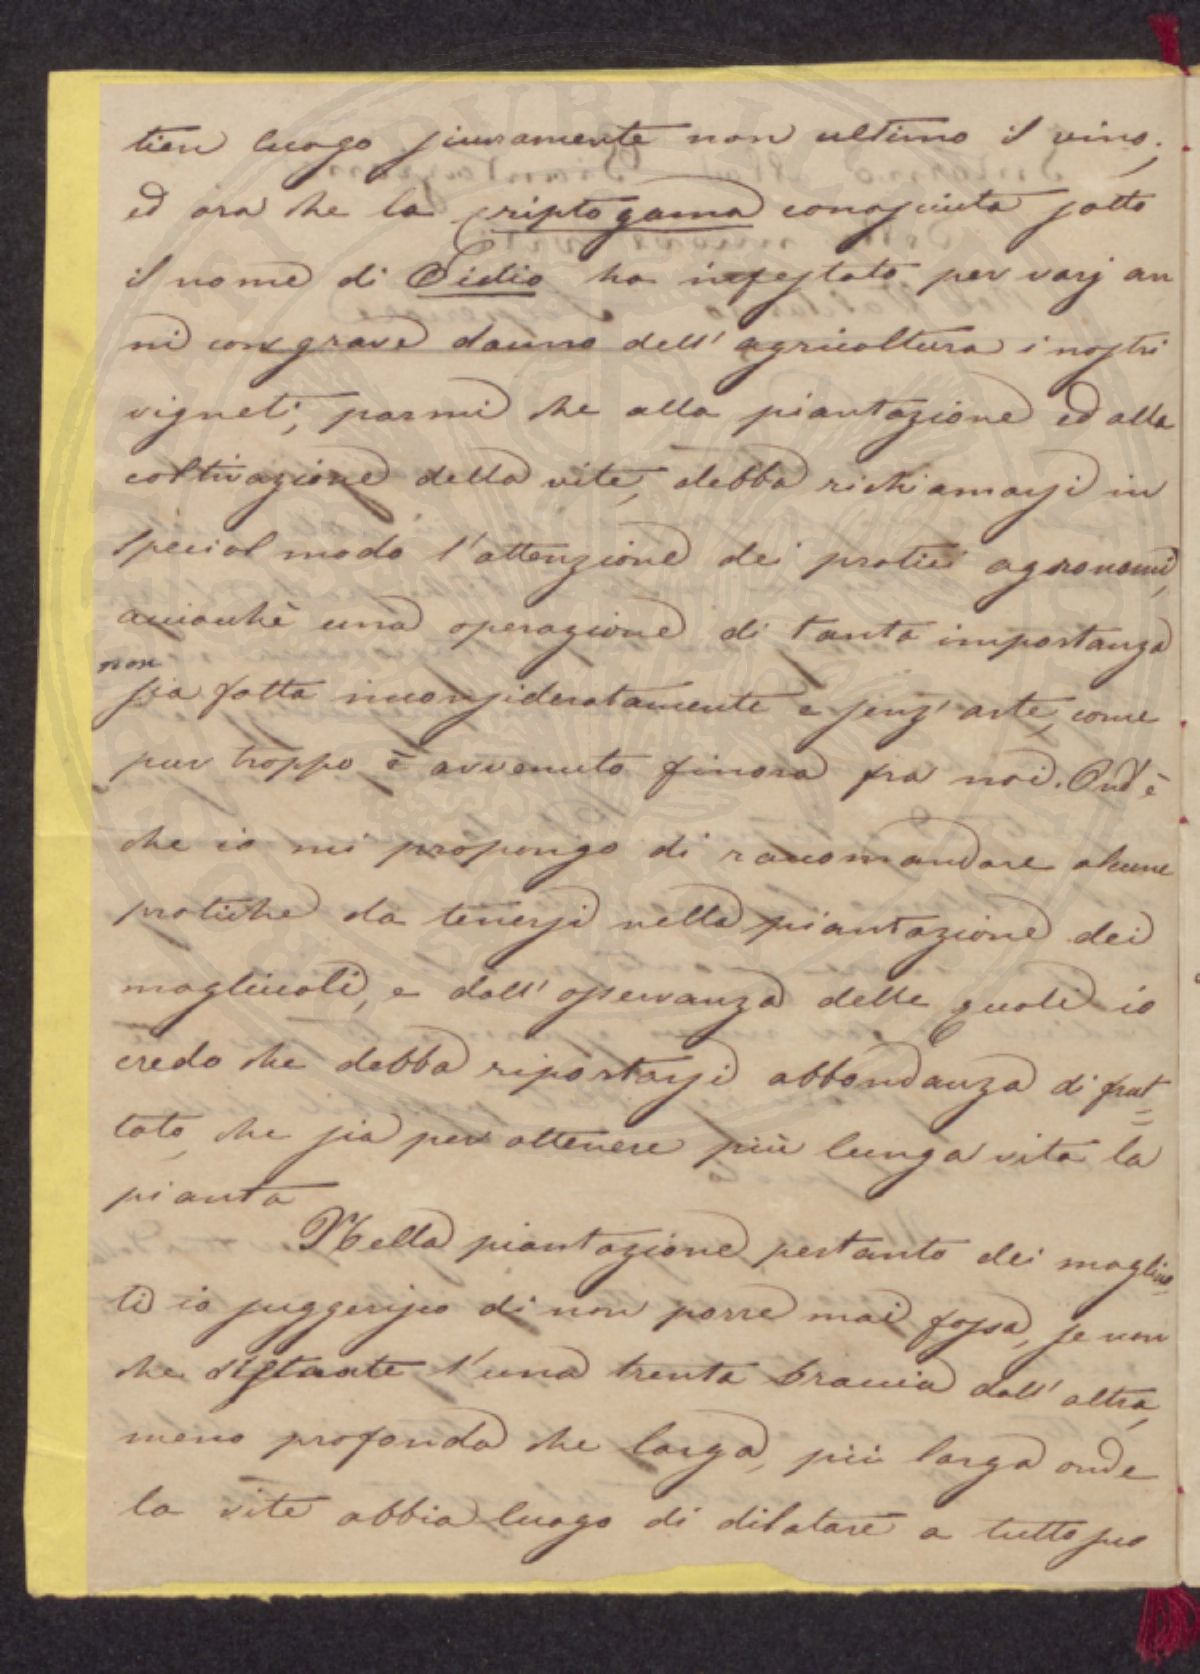 tien luogo sicuramente non ultimo il vino;
ed ora che la criptogama conosciuta sotto
il nome di Oidio ha infestato per varj an
ni con grave danno dell' agricoltura i nostri
vigneti, parmi che alla piantazione ed alla
coltivazione della vite, debba richiamarsi in
special modo l'attenzione dei pratici agronomi,
acciocchè una operazione di tanta importanza
non
sia fatta inconsideratamente e senz' arte, come
pur troppo è avvenuto finora fra noi. Ond' è
che io mi propongo di raccomandare alcune
pratiche da tenersi nella piantazione dei
magliuoli, e dall' osservanza delle quali io
credo che debba riportarsi abbondanza di frut=
tato, che sia per ottenere più lunga vita la
pianta
Nella piantazione pertanto dei magliuo=
li io suggerisco di non porre mai fossa, se non
che distante l'una trenta braccia dall' altra,
meno profonda che larga, più larga onde
la vite abbia luogo di dilatare a tutto suo